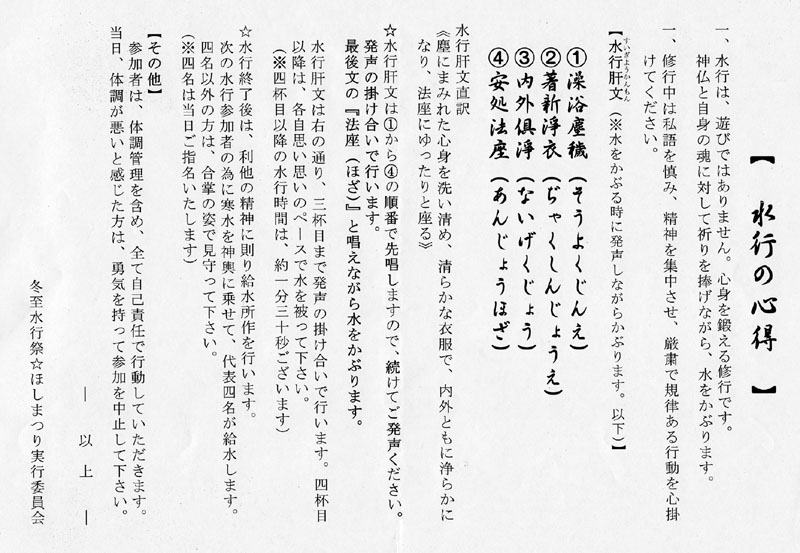 【 水行の心得 】
一、水行は、遊びではありません。心身を鍛える修行です。
神仏と自身の魂に対して祈りを捧げながら、水をかぶります。
一、修行中は私語を慎み、精神を集中させ、厳粛で規律ある行動を心掛
けてください。
【水行肝文（※水をかぶる時に発声しながらかぶります。以下）】
すいぎょうかんもん
①澡浴塵穢（そうよくじんえ）
②著新淨衣（ぢゃくしんじょうえ）
③内外俱淨（ないげくじょう）
④安処法座（あんじょうほざ）
水行肝文直訳
《塵にまみれた心身を洗い清め、清らかな衣服で、内外ともに浄らかに
なり、法座にゆったりと座る》
☆水行肝文は①から④の順番で先唱しますので、続けてご発声ください。
発声の掛け合いで行います。
最後文の『法座（ほざ）』と唱えながら水をかぶります。
水行肝文は右の通り、三杯目まで発声の掛け合いで行います。四杯目
以降は、各自思い思いのペースで水を被って下さい。
（※四杯目以降の水行時間は、約一分三十秒ございます）
☆水行終了後は、利他の精神に則り給水所作を行います。
次の水行参加者の為に寒水を神輿に乗せて、代表四名が給水します。
四名以外の方は、合掌の姿で見守って下さい。
（※四名は当日ご指名いたします）
【その他】
参加者は、体調管理を含め、全て自己責任で行動していただきます。
当日、体調が悪いと感じた方は、勇気を持って参加を中止して下さい。
― 以 上 ―
冬至水行祭☆ほしまつり実行委員会